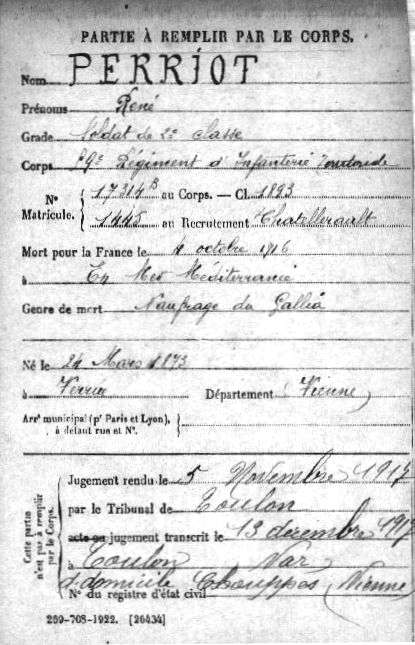 PARTIE À REMPLIR PAR LE CORPS.
Nom PERRIOT
Prénoms René
Grade Soldat de 2e classe
Corps Régiment d'Infanterie
Nº Matricule. 17314B au Corps. — Cl. 1893
1445 au Recrutement Chatellerault
Mort pour la France le 4 octobre 1916
à En Mer Méditerranée
Genre de mort Naufrage du Gallia
Né le 24 Mars 1873
à Verrue Département Vienne
Arrt municipal (pr Paris et Lyon), à défaut rue et Nº.
Cette partie n'est pas à remplir par le Corps.
Jugement rendu le 5 Novembre 1917
par le Tribunal de Toulon
acte ou jugement transcrit le 13 décembre 1917
à Toulon Var
d. domicile Chouppes (Vienne)
Nº du registre d'état civil
269-708-1922. [26434]